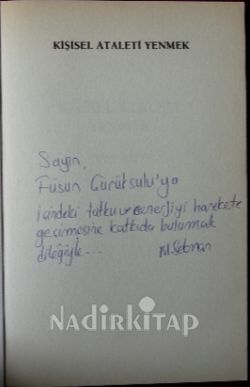 KİŞİSEL ATALETİ YENMEK
Sayın,
Füsun Gürüksulu'ya
İçindeki tutku ve enerjiyi harekete
geçirmesine katkıda bulunmak
dileğiyle...
NADİRKİTAP